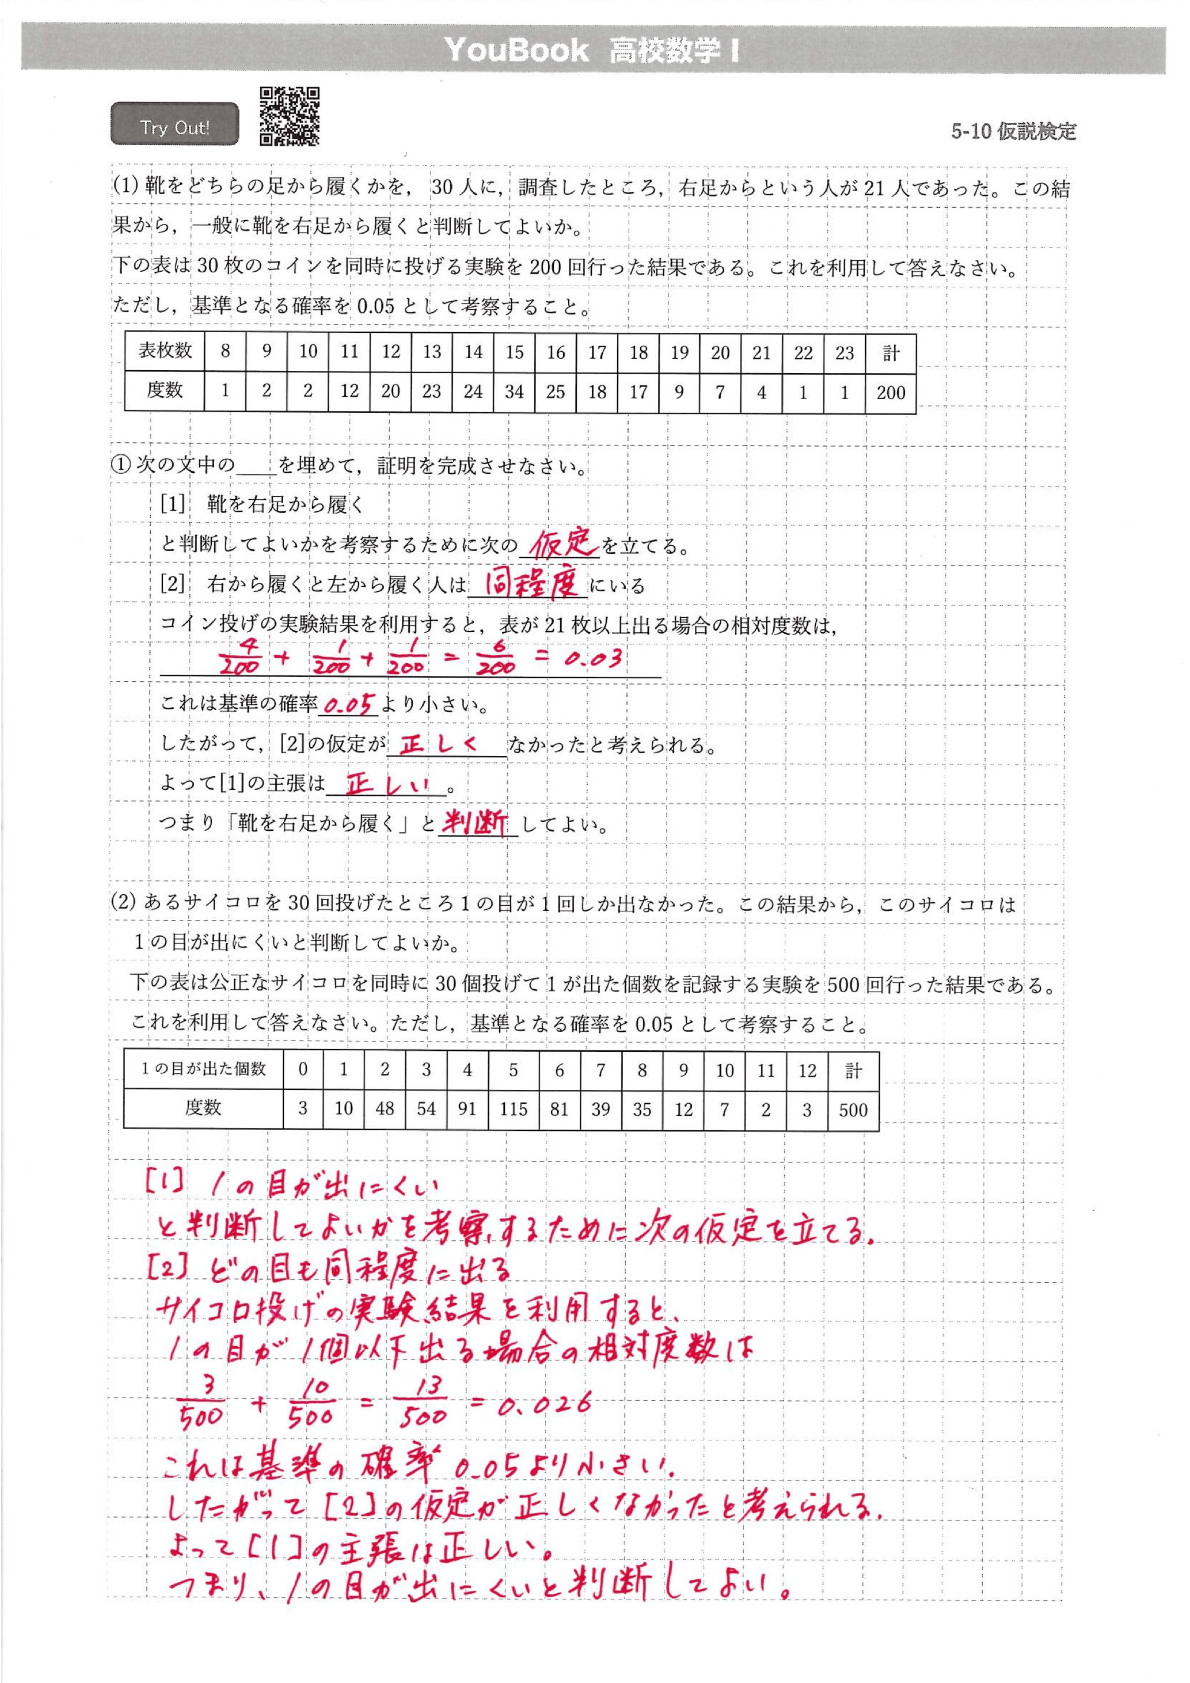 YouBook 高校数学 I
Try Out!
5-10 仮説検定
(1) 靴をどちらの足から履くかを， 30 人に，調査したところ，右足からという人が 21 人であった。この結
果から，一般に靴を右足から履くと判断してよいか。
下の表は 30 枚のコインを同時に投げる実験を 200 回行った結果である。これを利用して答えなさい。
ただし，基準となる確率を 0.05 として考察すること。
表枚数 8 9 10 11 12 13 14 15 16 17 18 19 20 21 22 23 計
度数 1 2 2 12 20 23 24 34 25 18 17 9 7 4 1 1 200
① 次の文中の____を埋めて，証明を完成させなさい。
[1] 靴を右足から履く
と判断してよいかを考察するために次の 仮定 を立てる。
[2] 右から履くと左から履く人は 同程度 にいる
コイン投げの実験結果を利用すると，表が 21 枚以上出る場合の相対度数は，
4/200 + 1/200 + 1/200 = 6/200 = 0.03
これは基準の確率 0.05 より小さい。
したがって，[2]の仮定が 正しく なかったと考えられる。
よって[1]の主張は 正しい 。
つまり「靴を右足から履く」と 判断 してよい。
(2) あるサイコロを 30 回投げたところ 1 の目が 1 回しか出なかった。この結果から，このサイコロは
1 の目が出にくいと判断してよいか。
下の表は公正なサイコロを同時に 30 個投げて 1 が出た個数を記録する実験を 500 回行った結果である。
これを利用して答えなさい。ただし，基準となる確率を 0.05 として考察すること。
1 の目が出た個数 0 1 2 3 4 5 6 7 8 9 10 11 12 計
度数 3 10 48 54 91 115 81 39 35 12 7 2 3 500
[1] 1の目が出にくい
と判断してよいかを考察するために次の仮定を立てる.
[2] どの目も同程度に出る
サイコロ投げの実験結果を利用すると、
1の目が1個以下出る場合の相対度数は
3/500 + 10/500 = 13/500 = 0.026
これは基準の確率 0.05より小さい.
したがって[2]の仮定が正しくなかったと考えられる.
よって[1]の主張は正しい。
つまり、1の目が出にくいと判断してよい。